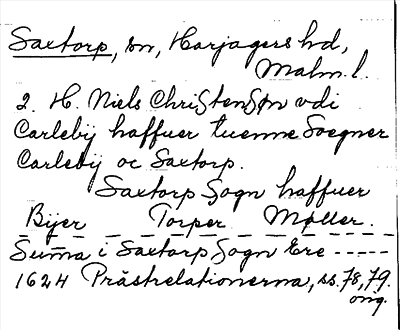 Saxtorp, sn, Harjagers hd,
Malm. l.
2. H. Niels ChriStenSøn vdi
Carlebÿ haffuer tuenne Soegner
Carlebÿ oc Saxtorp.
Saxtorp Sogn haffuer
Bÿer Torper Møller.
Sum̄a i Saxtorp Sogn Ere -----
1624 Prästrelationerna, ss. 78, 79.
orig.